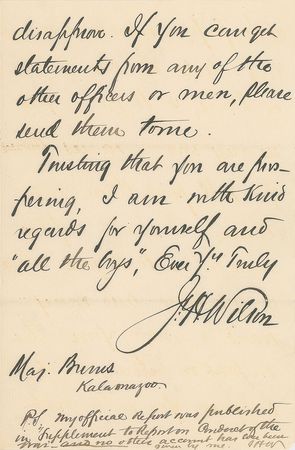 disapprove. If you can get
statements from any of the
other officers or men, please
send them to me.
Trusting that you are pros-
pering, I am with Kind
regards for yourself and
"all the boys", Ever Yrs Truly
J.H. Wilson
Maj. Burns
Kalamazoo
P.S. My official Report was published
in "Supplement to Report on Conduct of the
War - and no other account has ever been
given by me. JHW